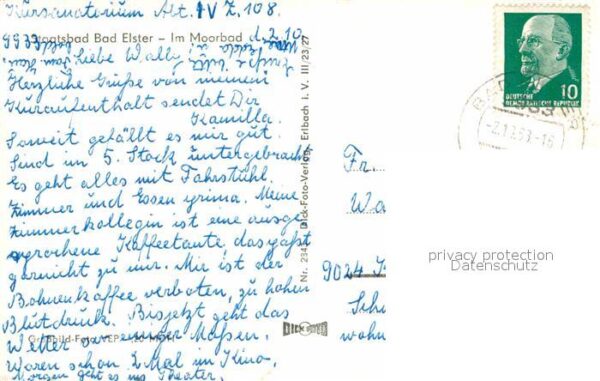 Kursanatorium Abt. IV Z. 108.
Staatsbad Bad Elster – Im Moorbad
d. 2.10.
Liebe Wally
Herzliche Grüße von meinem
Kuraufenthalt sendet Dir
Kamilla.
Soweit gefällt es mir gut.
Sind im 5. Stock untergebracht
Es geht alles mit Fahrstuhl.
Zimmer und Essen prima. Meine
Zimmerkollegin ist eine ausge
sprochene Kaffeetante, das paßt
garnicht zu mir. Mir ist der
Bohnenkaffee verboten, zu hoher
Blutdruck. Bis jetzt geht das
Wetter so einiger Maßen.
Waren schon 2 Mal im Kino,
Morgen geht es ins Theater.
Nr. 234 Dick-Foto-Verlag, Erlbach i. V. III/23/27
DICK
10
DEUTSCHE
DEMOKRATISCHE REPUBLIK
BAD
Fr.
Wa
9024
Sch
wohn
privacy protection
Datenschutz